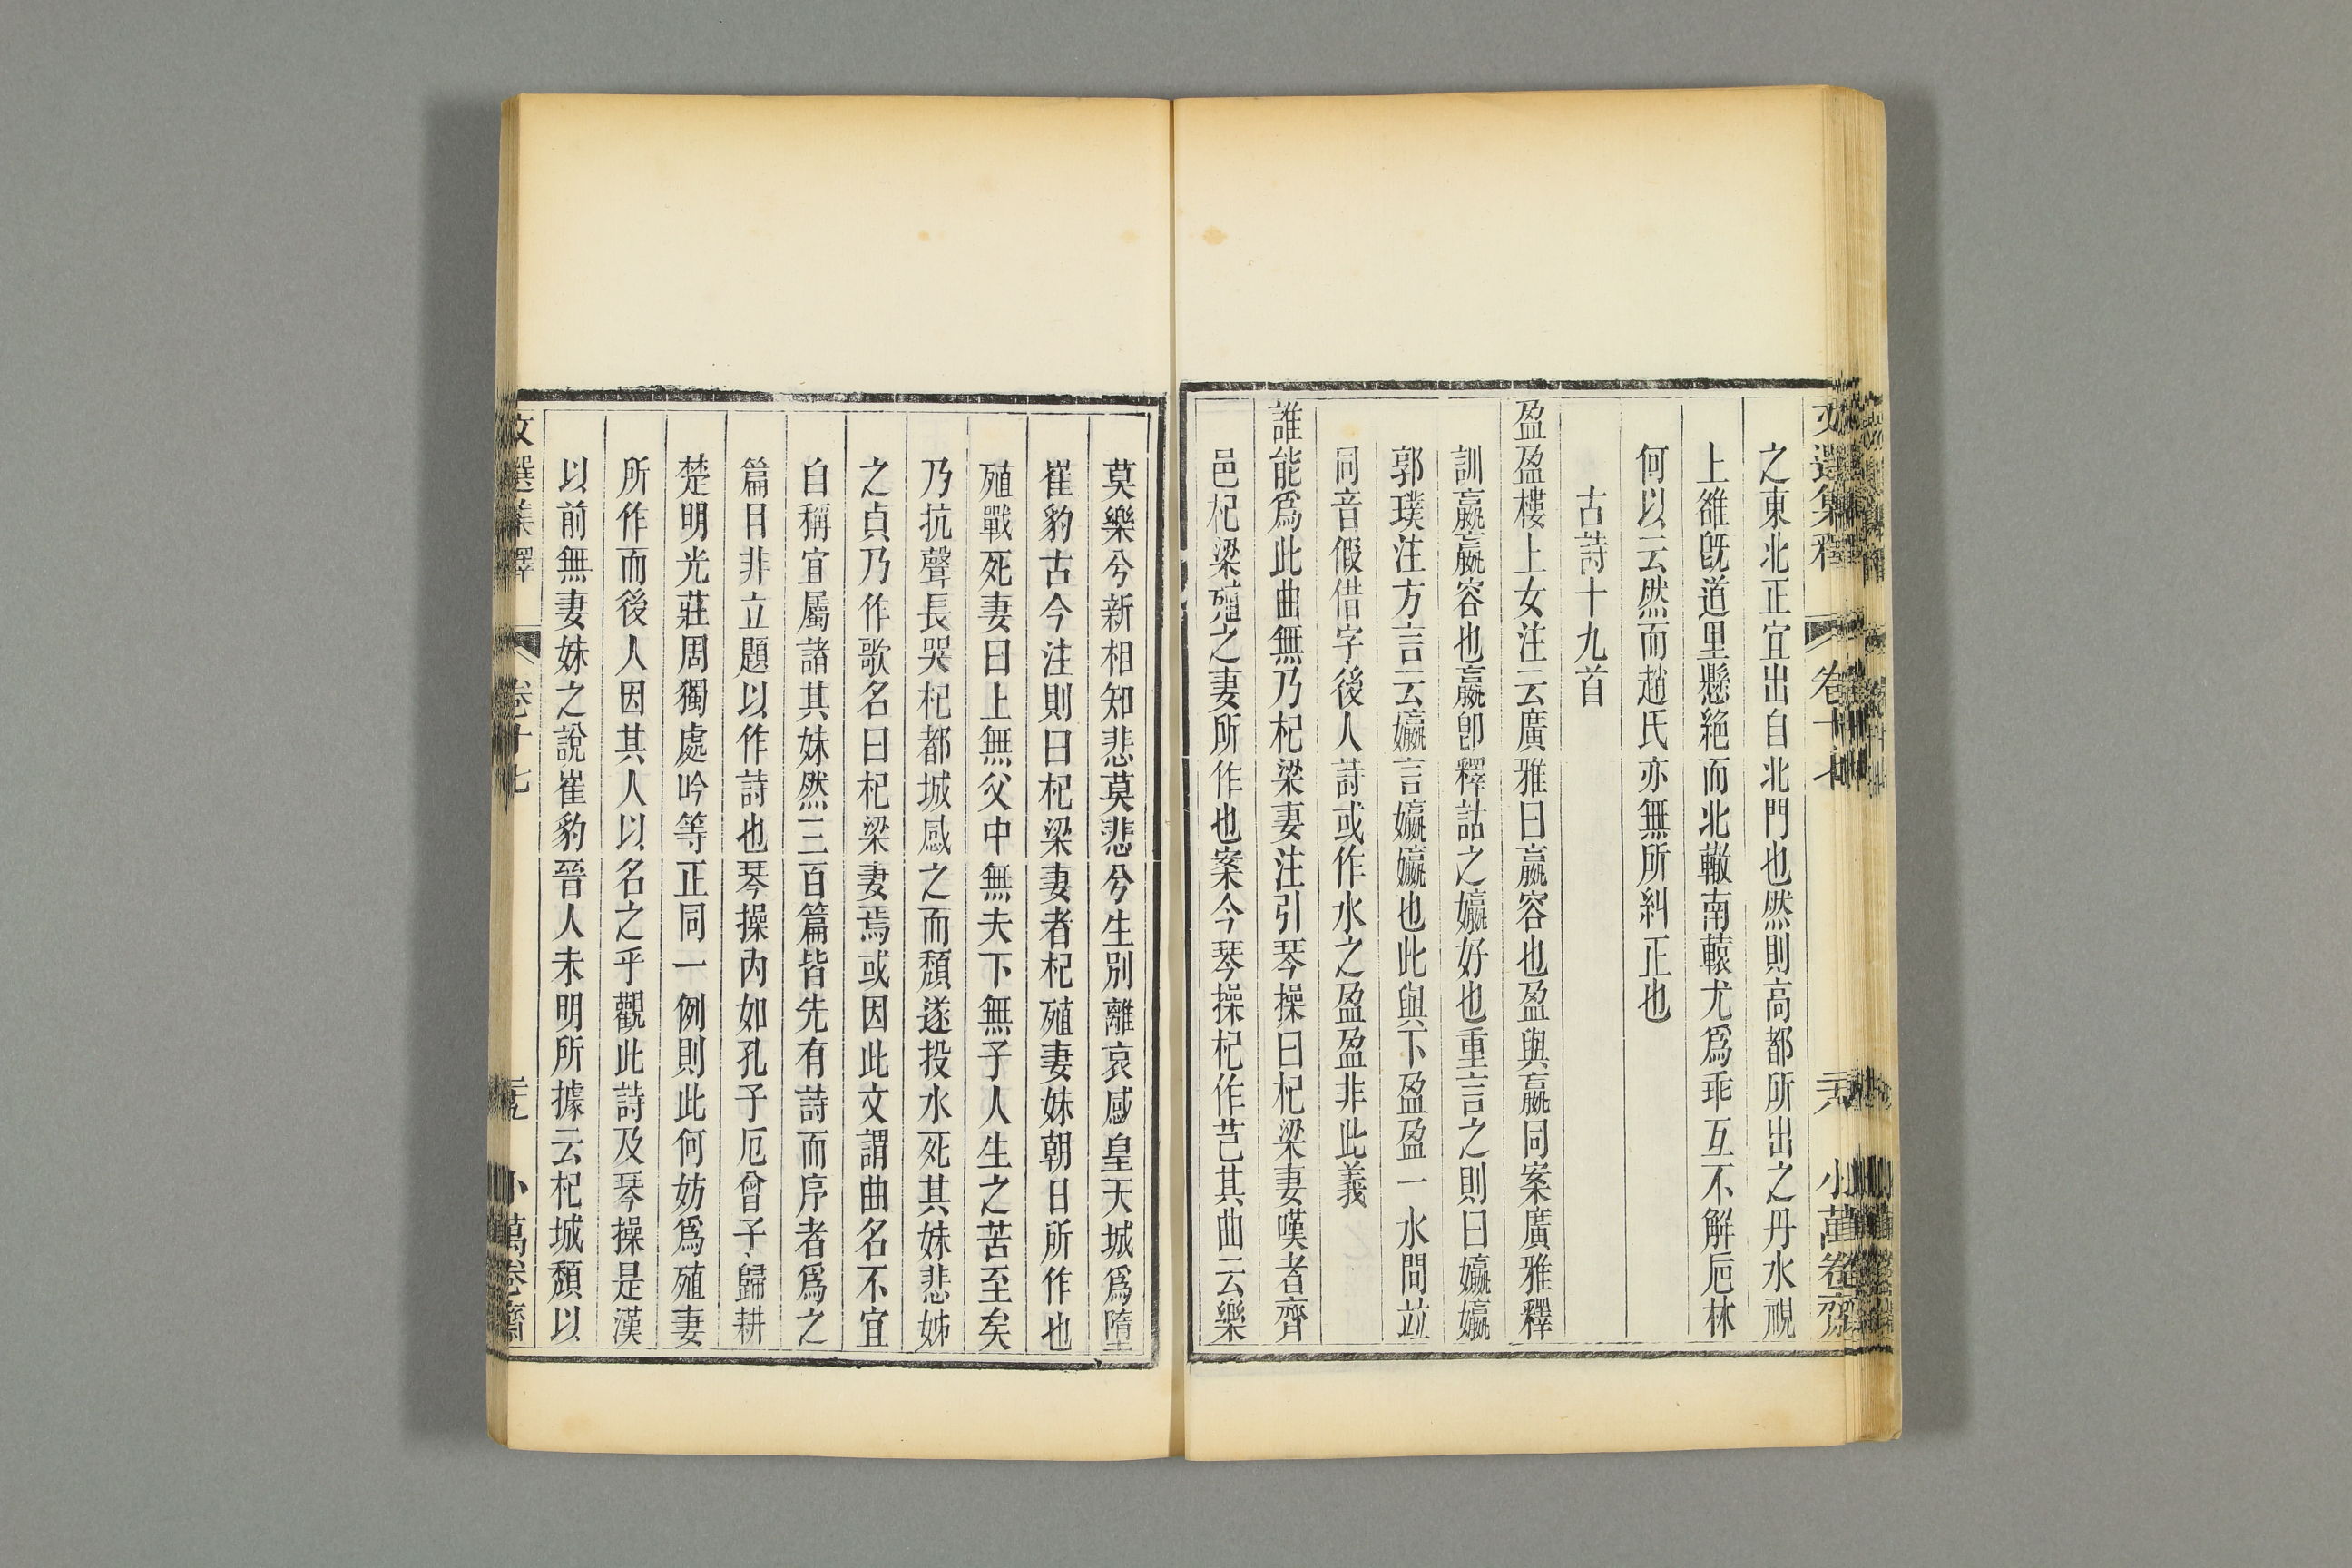 文選集釋 卷十七 二十八 小萬卷齋
之東北正宜出自北門也然則高都所出之丹水視
上雒旣道里懸絶而北轍南轅尤爲乖互不解巵林
何以云然而趙氏亦無所糾正也
古詩十九首
盈盈樓上女注云廣雅曰嬴容也盈與嬴同案廣雅釋
訓嬴嬴容也嬴卽釋詁之㜲好也重言之則曰㜲㜲
郭璞注方言云㜲言㜲㜲也此與下盈盈一水間竝
同音假借字後人詩或作水之盈盈非此義
誰能爲此曲無乃杞梁妻注引琴操曰杞梁妻嘆者齊
邑杞梁殖之妻所作也案今琴操杞作芑其曲云樂
莫樂兮新相知悲莫悲兮生別離哀感皇天城爲墮
崔豹古今注則曰杞梁妻者杞殖妻妹朝日所作也
殖戰死妻曰上無父中無夫下無子人生之苦至矣
乃抗聲長哭杞都城感之而頽遂投水死其妹悲姊
之貞乃作歌名曰杞梁妻焉或因此文謂曲名不宜
自稱宜屬諸其妹然三百篇皆先有詩而序者爲之
篇目非立題以作詩也琴操內如孔子厄曾子歸耕
楚明光莊周獨處吟等正同一例則此何妨爲殖妻
所作而後人因其人以名之乎觀此詩及琴操是漢
以前無妻妹之說崔豹晉人未明所據云杞城頽以
文選集釋 卷十七 二十九 小萬卷齋